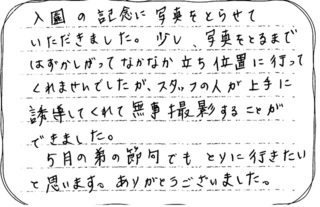 入園の記念に写真をとらせて
いただきました。少し、写真をとるまで
はずかしがってなかなか立ち位置に行って
くれませんでしたが、スタッフの人が上手に
誘導してくれて無事撮影することが
できました。
5月の弟の節句でもとりに行きたい
と思います。ありがとうございました。